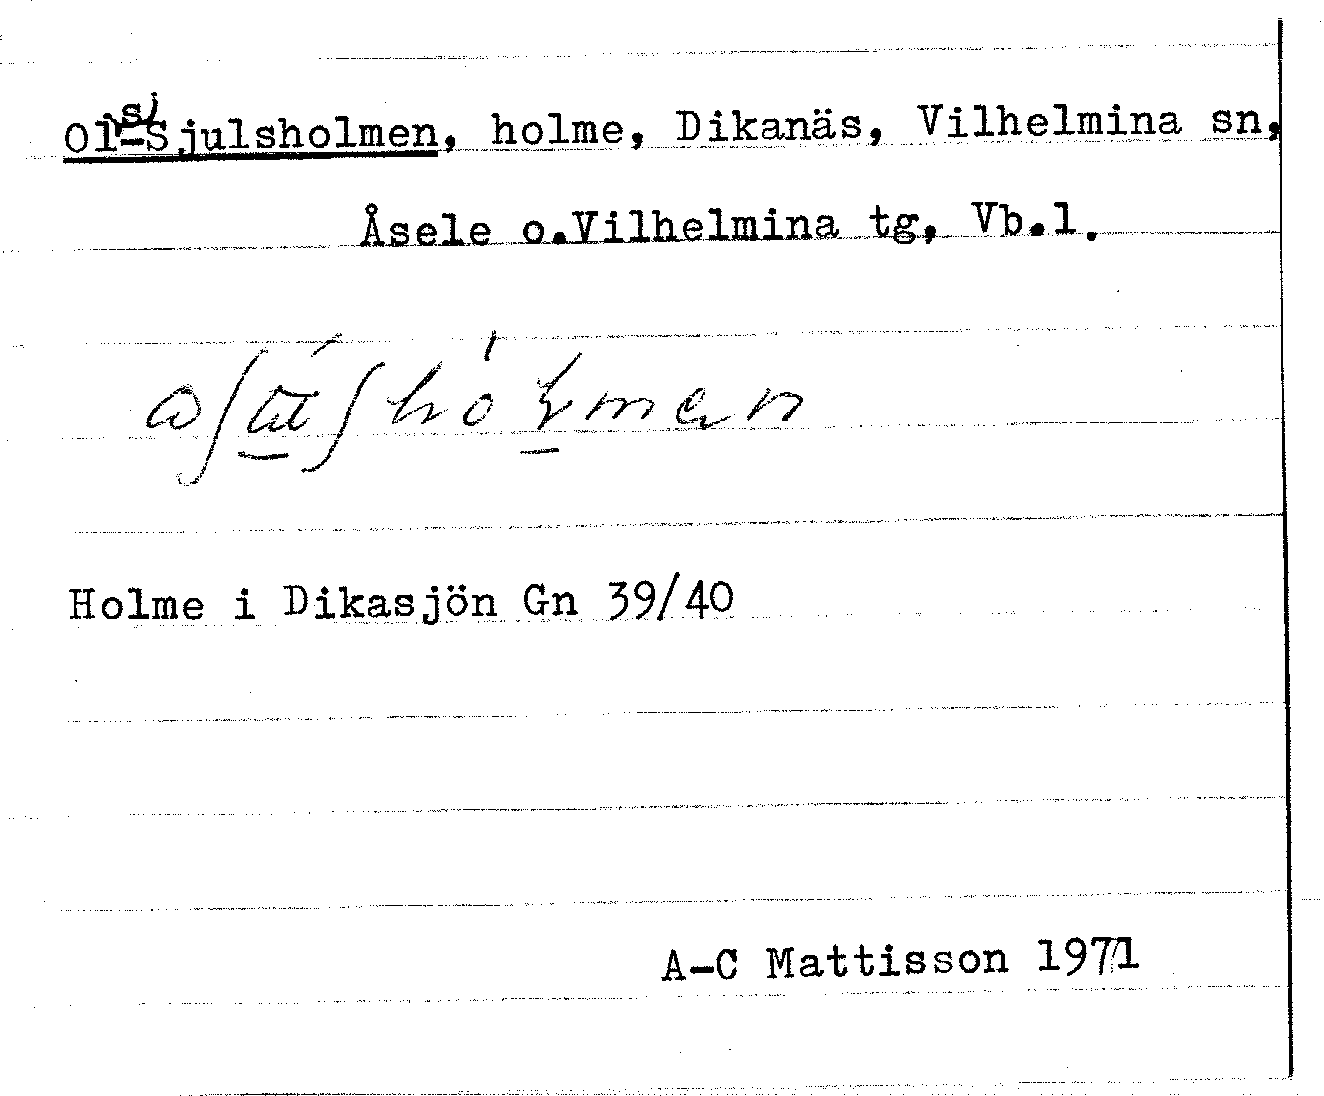 Ol-Sjulsholmen, holme, Dikanäs, Vilhelmina sn,
Åsele o.Vilhelmina tg, Vb.l.
Holme i Dikasjön Gn 39/40
A-C Mattisson 1971